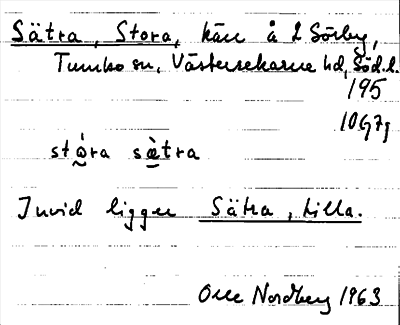 Sätra, Stora, kärr å L Sörby,
Tumbo sn, Västerrekarne hd, Söd.l.
195
10G7g
stọ̀ra sæ̀tra
Invid ligger Sätra, Lilla.
Olle Nordberg 1963